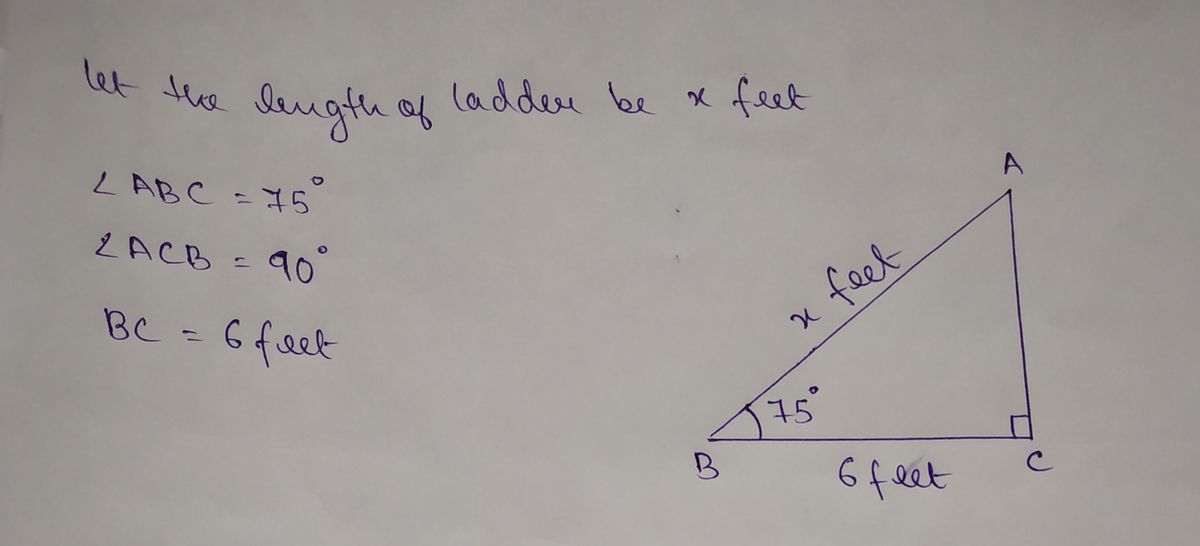 let the length of ladder be x feet
∠ABC = 75°
∠ACB = 90°
BC = 6 feet
A
x feet
75°
B
6 feet
C